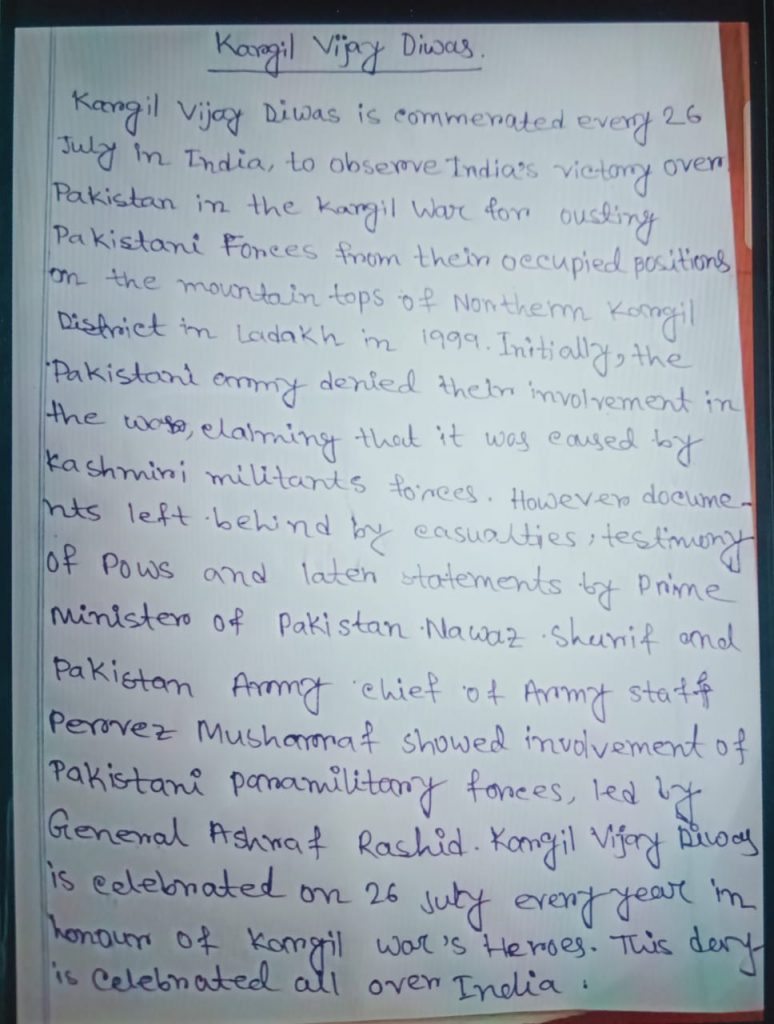 Kargil Vijay Diwas.
Kargil Vijay Diwas is commerated every 26
July in India, to observe India's victory over
Pakistan in the Kargil War for ousting
Pakistani Forces from their occupied positions
on the mountain tops of Northern Kargil
District in Ladakh in 1999. Initially, the
Pakistani army denied their involvement in
the war, claiming that it was caused by
Kashmiri militants forces. However docume-
nts left behind by casualties, testimony
of POWs and later statements by Prime
Minister of Pakistan Nawaz Sharif and
Pakistan Army chief of Army staff
Pervez Musharraf showed involvement of
Pakistani paramilitary forces, led by
General Ashraf Rashid. Kargil Vijay Diwas
is celebrated on 26 July every year in
honour of Kargil War's Heroes. This day
is celebrated all over India.